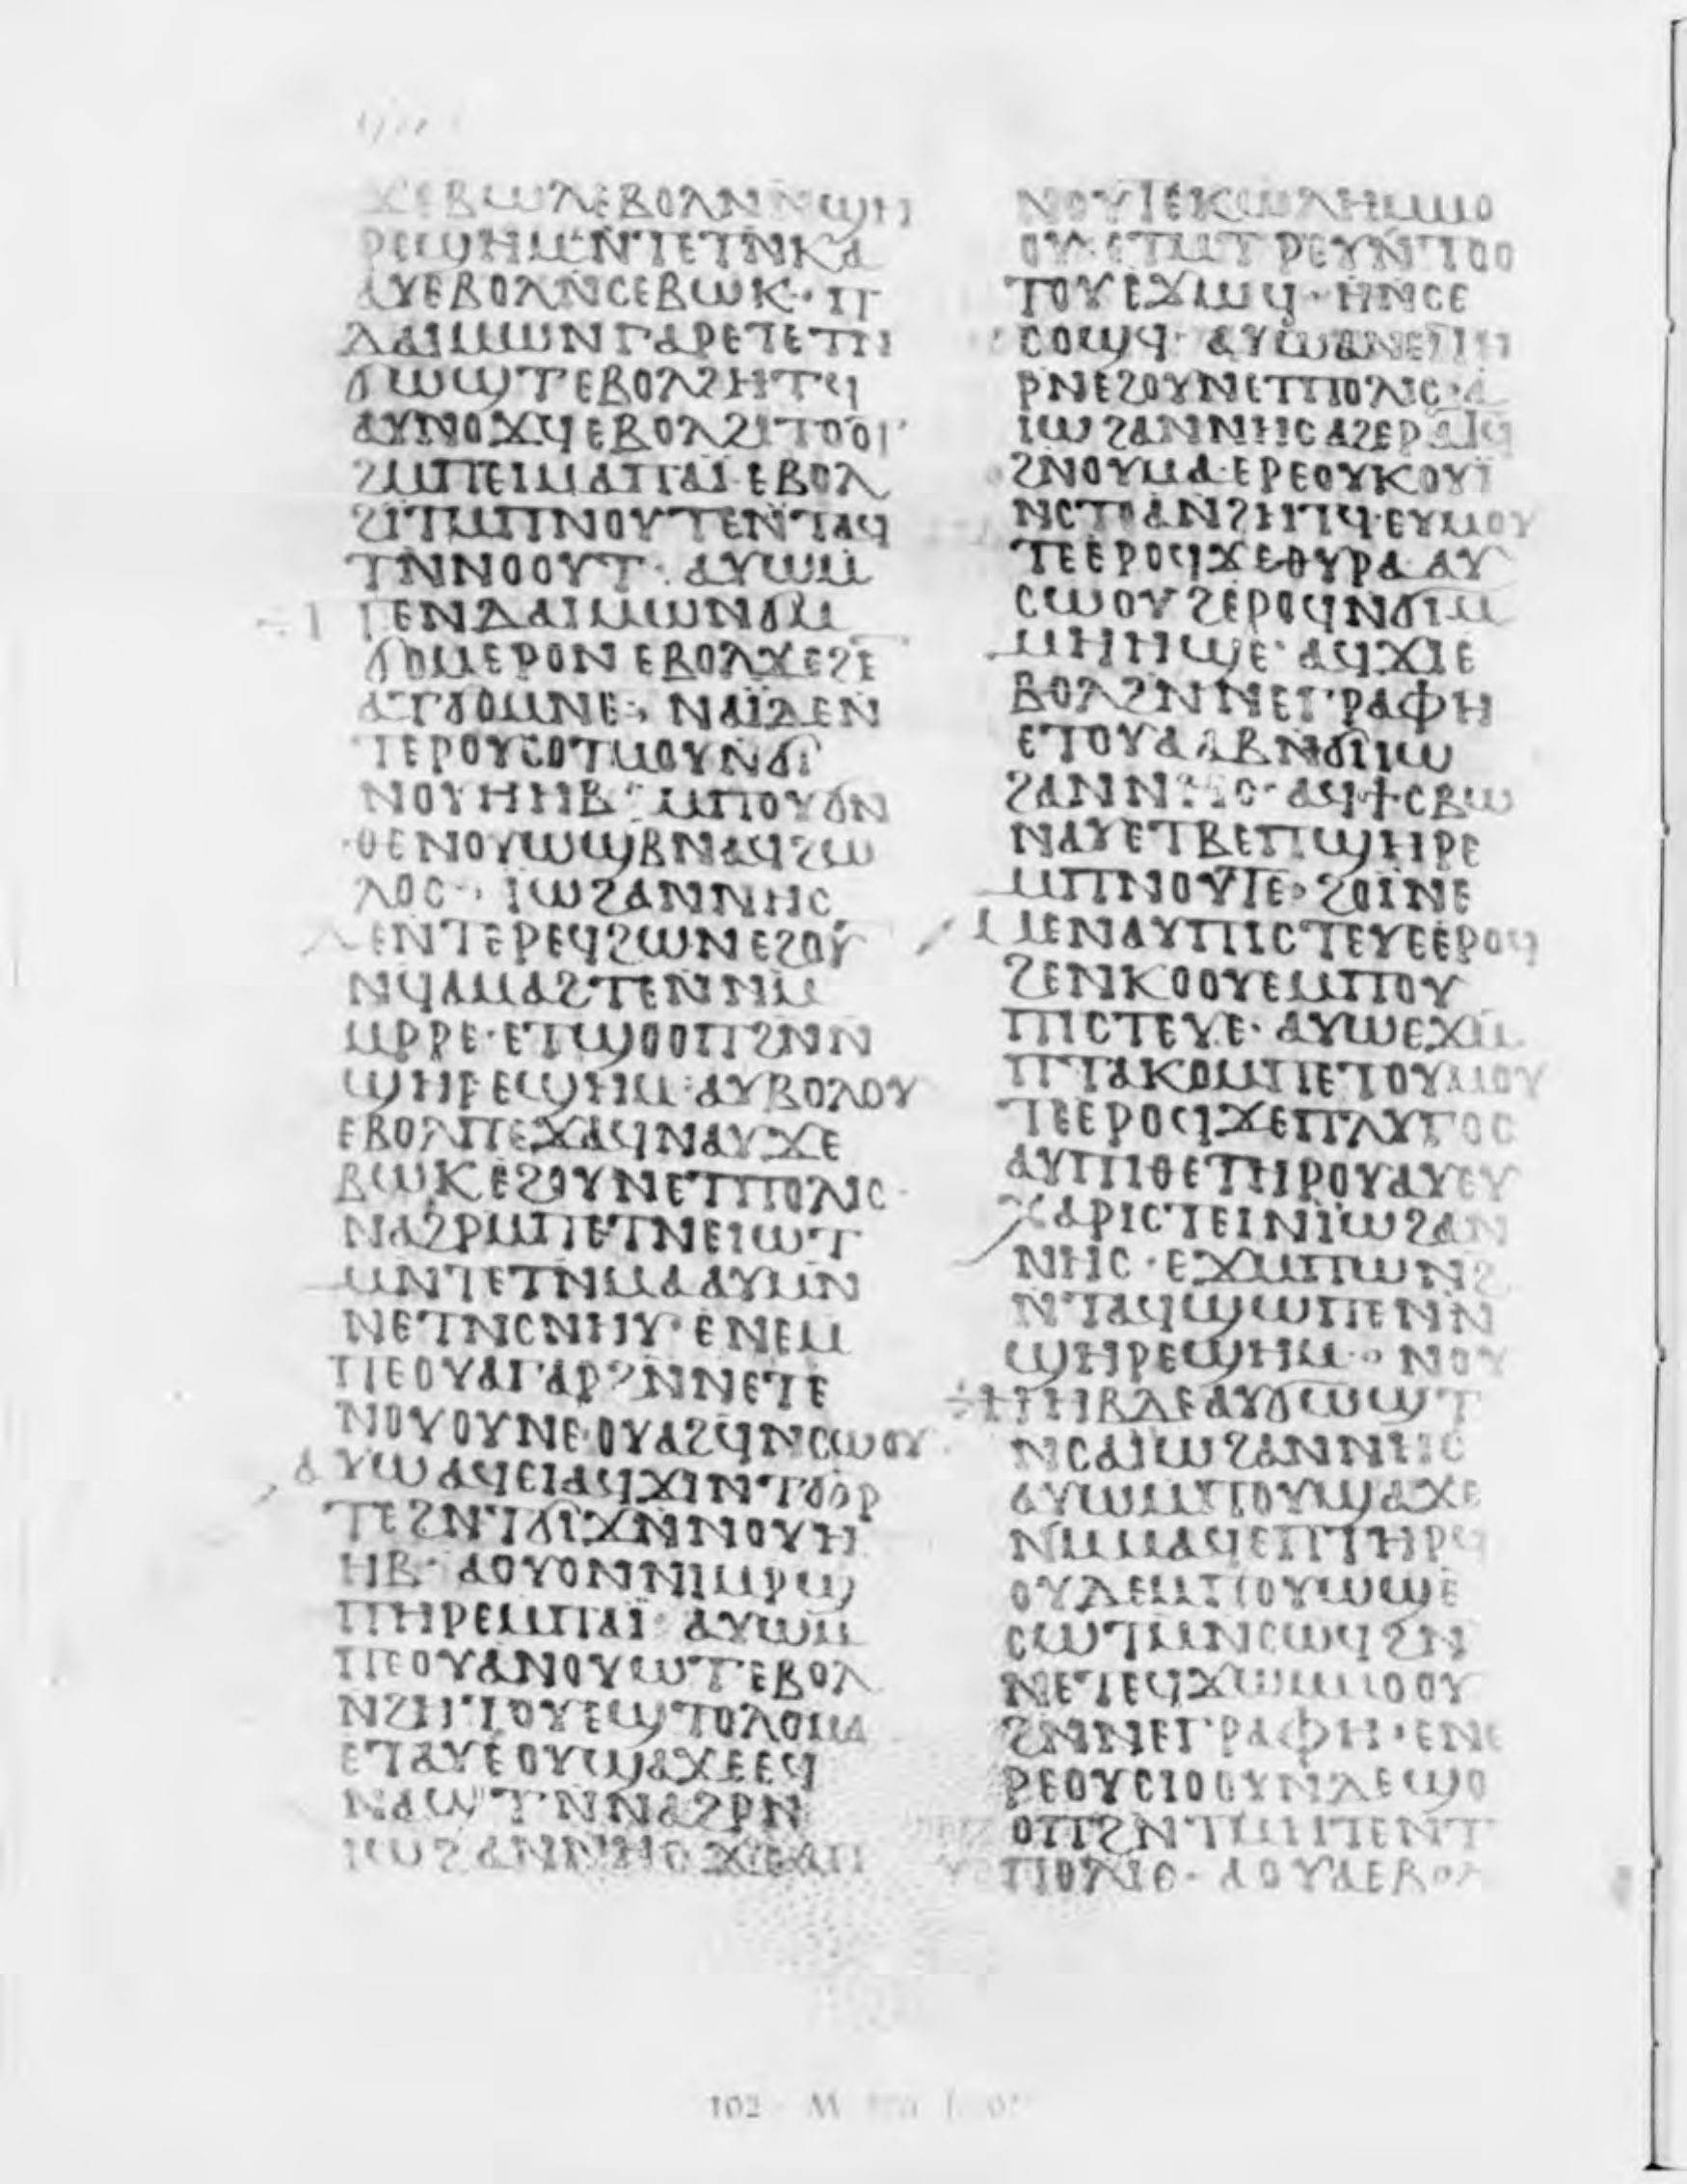 ϪⲈⲂⲰⲖⲈⲂⲞⲖⲚⲚϢⲎ
ⲢⲈϢⲎⲘⲚⲦⲈⲦⲚⲔⲀ
ⲀⲨⲈⲂⲞⲖⲚⲤⲈⲂⲰⲔ· ⲠⲦ
ⲆⲀⲒⲘⲰⲚⲄⲀⲢⲈⲦⲈⲦⲚ
ϬⲰϢⲦⲈⲂⲞⲖϨⲎⲦϤ
ⲀⲨⲚⲞϪϤⲈⲂⲞⲖϨⲒⲦⲞⲞⲦ
ϨⲘⲠⲈⲒⲘⲀⲠⲀⲒ·ⲈⲂⲞⲖ
ϨⲒⲦⲘⲠⲚⲞⲨⲦⲈⲚⲦⲀϤ
ⲦⲚⲚⲞⲞⲨⲦ· ⲀⲨⲰⲘ
ⲠⲈⲚⲆⲀⲒⲘⲰⲚϬⲘ
ϬⲞⲘⲈⲢⲞⲚⲈⲂⲞⲖϪⲈϨⲈ
ⲀⲦϬⲞⲘⲚⲈ· ⲚⲀⲒⲆⲈⲚ
ⲦⲈⲢⲞⲨⲤⲞⲦⲘⲞⲨⲚϬⲒ
ⲚⲞⲨⲎⲎⲂ· ⲘⲠⲞⲨϬⲚ
ⲐⲈⲚⲞⲨⲰϢⲂⲚⲀϤϨⲰ
ⲖⲞⲤ· ⲒⲰϨⲀⲚⲚⲎⲤ
ⲆⲈⲚⲦⲈⲢⲈϤϨⲰⲚⲈϨⲞⲨ
ⲚϤⲀⲘⲀϨⲦⲈⲚⲚⲘ
ⲘⲢⲢⲈ·ⲈⲦϢⲞⲞⲠϨⲚⲚ
ϢⲎⲢⲈϢⲎⲘ·ⲀⲨⲂⲞⲖⲞⲨ
ⲈⲂⲞⲖⲠⲈϪⲀϤⲚⲀⲨϪⲈ
ⲂⲰⲔⲈϨⲞⲨⲚⲈⲦⲠⲞⲖⲒⲤ·
ⲚⲀϨⲢⲘⲠⲈⲦⲚⲈⲒⲰⲦ
ⲘⲚⲦⲈⲦⲚⲘⲀⲀⲨⲘⲚ
ⲚⲈⲦⲚⲤⲚⲎⲨ·ⲈⲚⲈⲘ
ⲠⲈⲞⲨⲀⲄⲀⲢϨⲚⲚⲈⲦⲈ
ⲚⲞⲨⲞⲨⲚⲈ·ⲞⲨⲀϨϤⲚⲤⲰⲞⲨ
ⲀⲨⲰⲀϤⲈⲒⲀϤϪⲒⲚⲦϬⲞⲢ
ⲦⲈϨⲚⲦϬⲒϪⲚⲚⲞⲨⲎ
ⲎⲂ· ⲀⲞⲨⲞⲚⲚⲒⲘⲢϢ
ⲠⲎⲢⲈⲘⲠⲀⲒ· ⲀⲨⲰⲘ
ⲠⲈⲞⲨⲀⲚⲞⲨⲰⲦⲈⲂⲞⲖ
ⲚϨⲎⲦⲞⲨⲈϢⲦⲞⲖⲘⲀ
ⲈⲦⲀⲨⲈⲞⲨϢⲀϪⲈⲈϤ
ⲚⲀϢⲦⲚⲚⲀϨⲢⲚ
ⲒⲰϨⲀⲚⲚⲎⲤϪⲈⲀⲠ
ⲚⲞⲨⲦⲈⲔⲰⲖⲎⲘⲘⲞ
ⲞⲨ·ⲈⲦⲘⲦⲢⲈⲨⲚⲦⲞⲞ
ⲦⲞⲨⲈϪⲰϤ·ⲎⲚⲤⲈ
ⲤⲞϢϤ· ⲀⲨⲰⲀⲚⲈⲒⲎ
ⲢⲚⲈϨⲞⲨⲚⲈⲦⲠⲞⲖⲒⲤ·Ⲁ
ⲒⲰϨⲀⲚⲚⲎⲤⲀϨⲈⲢⲀⲦϤ
ϨⲚⲞⲨⲘⲀ·ⲈⲢⲈⲞⲨⲔⲞⲨⲒ
ⲚⲤⲦⲞⲀⲚϨⲎⲦϤ·ⲈⲨⲘⲞⲨ
ⲦⲈⲈⲢⲞϤϪⲈⲐⲨⲢⲀ·ⲀⲨ
ⲤⲰⲞⲨϨⲈⲢⲞϤⲚϬⲒⲘ
ⲘⲎⲎϢⲈ· ⲀϤϪⲒⲈ
ⲂⲞⲖϨⲚⲚⲈⲄⲢⲀⲪⲎ
ⲈⲦⲞⲨⲀⲀⲂⲚϬⲒⲒⲰ
ϨⲀⲚⲚⲎⲤ· ⲀϤϮⲤⲂⲰ
ⲚⲀⲨⲈⲦⲂⲈⲠϢⲎⲢⲈ
ⲘⲠⲚⲞⲨⲦⲈ· ϨⲞⲒⲚⲈ
ⲘⲈⲚⲀⲨⲠⲒⲤⲦⲈⲨⲈⲈⲢⲞϤ
ϨⲈⲚⲔⲞⲞⲨⲈⲘⲠⲞⲨ
ⲠⲒⲤⲦⲈⲨⲈ· ⲀⲨⲰⲈϪⲘ
ⲠⲦⲀⲔⲞⲘⲠⲈⲦⲞⲨⲘⲞⲨ
ⲦⲈⲈⲢⲞϤϪⲈⲠⲖⲨⲄⲞⲤ
ⲀⲨⲠⲒⲐⲈⲦⲎⲢⲞⲨⲀⲨⲈⲨ
ⲬⲀⲢⲒⲤⲦⲈⲒⲚⲒⲰϨⲀⲚ
ⲚⲎⲤ·ⲈϪⲘⲠⲰⲚϨ
ⲚⲦⲀϤϢⲰⲠⲈⲚⲚ
ϢⲎⲢⲈϢⲎⲘ· ⲚⲞⲨ
ⲎⲎⲂⲆⲈⲀⲨϬⲰϢⲦ
ⲚⲤⲀⲒⲰϨⲀⲚⲚⲎⲤ
ⲀⲨⲰⲘⲠⲞⲨϢⲀϪⲈ
ⲚⲘⲘⲀϤⲈⲠⲦⲎⲢϤ
ⲞⲨⲆⲈⲘⲠⲞⲨⲰϢⲈ
ⲤⲰⲦⲘⲚⲤⲰϤϨⲚ
ⲚⲈⲦⲈϤϪⲰⲘⲘⲞⲞⲨ
ϨⲚⲚⲈⲄⲢⲀⲪⲎ·ⲈⲚⲈ
ⲢⲈⲞⲨⲤⲒⲞⲞⲨⲚⲆⲈϢⲞ
ⲞⲠϨⲚⲦⲘⲎⲦⲈⲚⲦ
ⲠⲞⲖⲒⲤ· ⲀⲞⲨⲀⲈⲂⲞⲖ